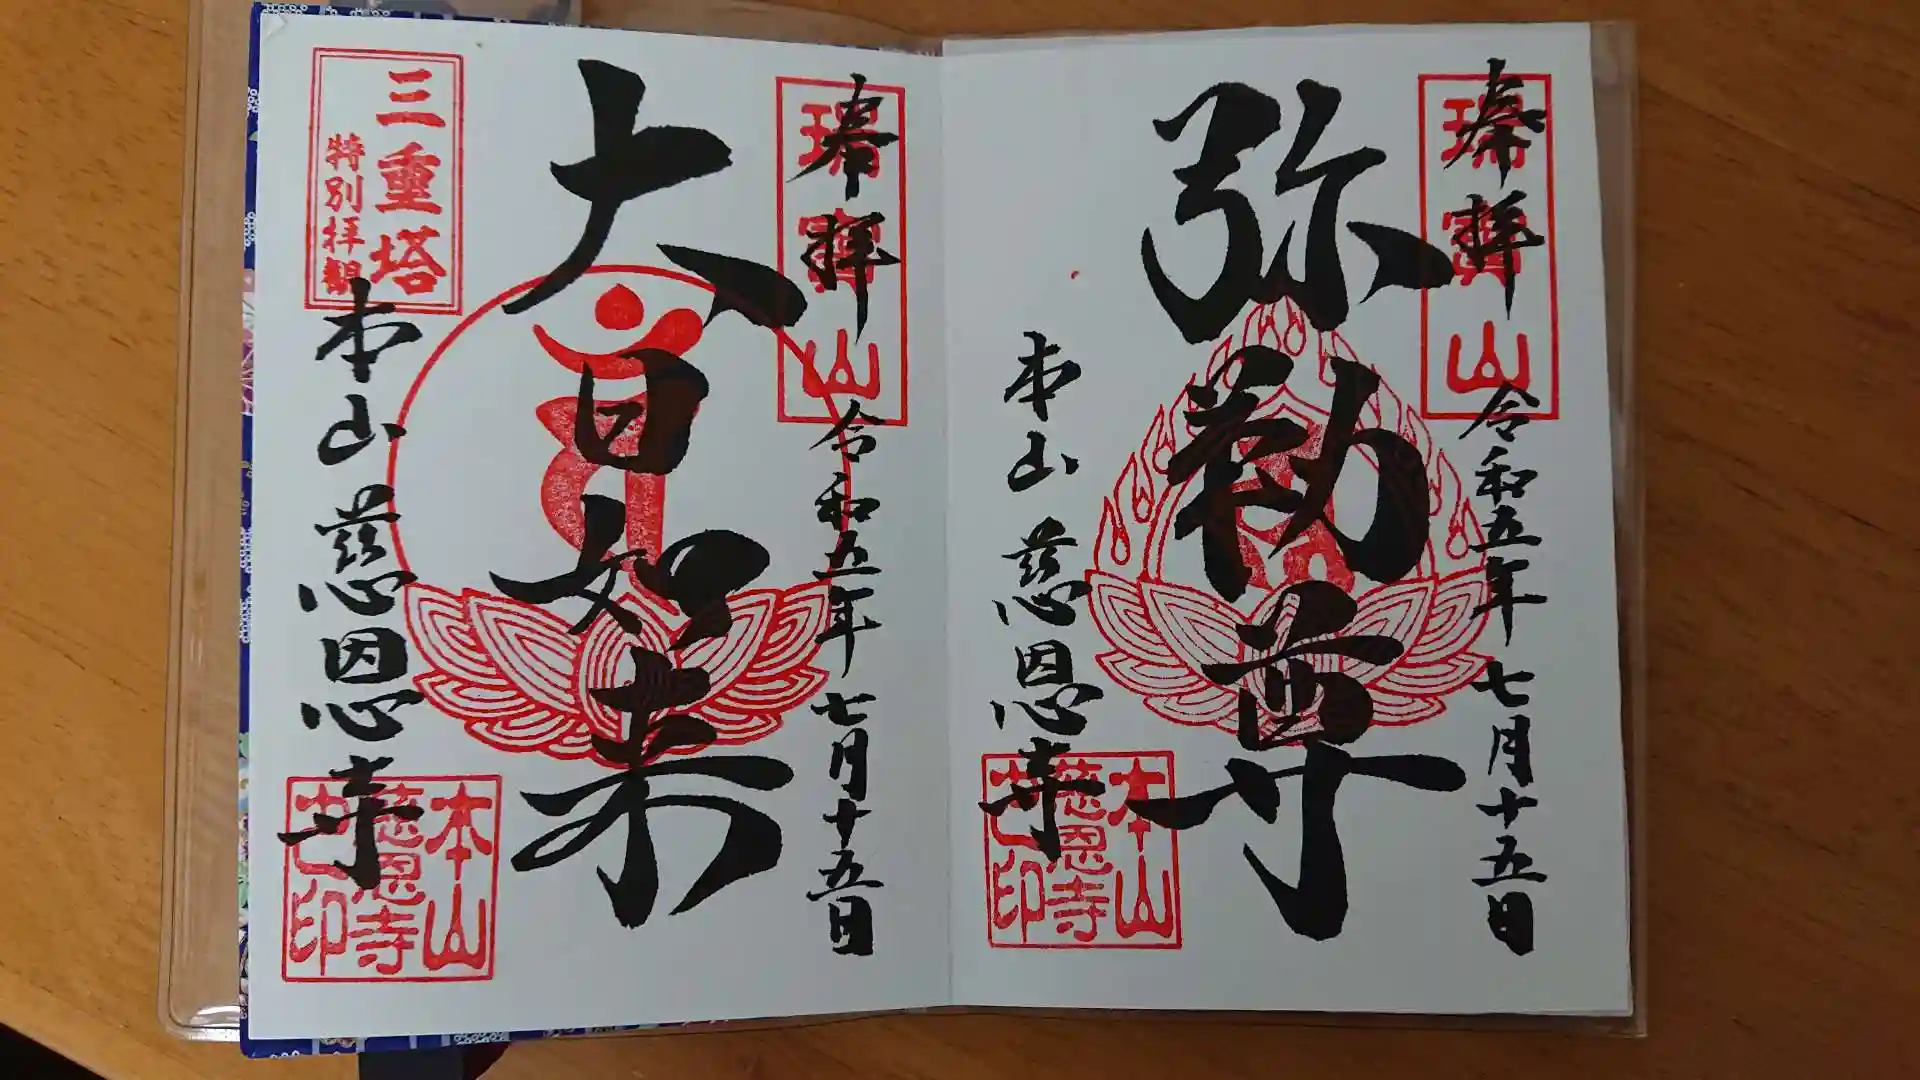 奉拝
瑞寶山
令和五年七月十五日
弥勒尊
本山慈恩寺
本山
慈恩寺
之印
奉拝
瑞寶山
令和五年七月十五日
大日如来
三重塔
特別拝観
本山慈恩寺
本山
慈恩寺
之印